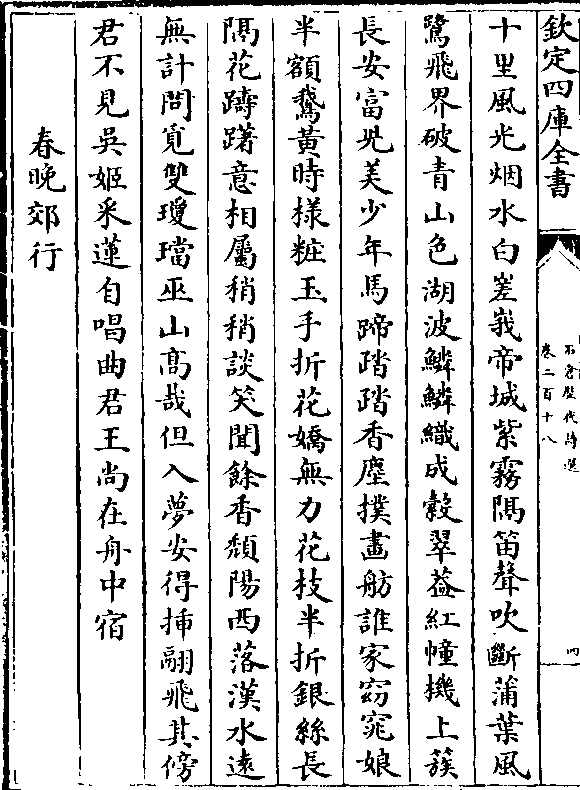 欽定四庫全書
石倉歷代詩選
卷二百十八
十里風光烟水白嵳峩帝城紫霧隔笛聲吹斷蒲葉風
鷺飛界破青山色湖波鱗鱗織成縠翠葢紅幢機上簇
長安富兒美少年馬蹄踏踏香塵撲畫舫誰家窈窕娘
半額鵞黃時様粧玉手折花嬌無力花枝半折銀絲長
隔花躊躇意相屬稍稍談笑聞餘香頹陽西落漢水遠
無計問覓雙瓊璫巫山髙哉但入夢安得挿翮飛其傍
君不見吳姬采蓮自唱曲君王尚在舟中宿
春晚郊行